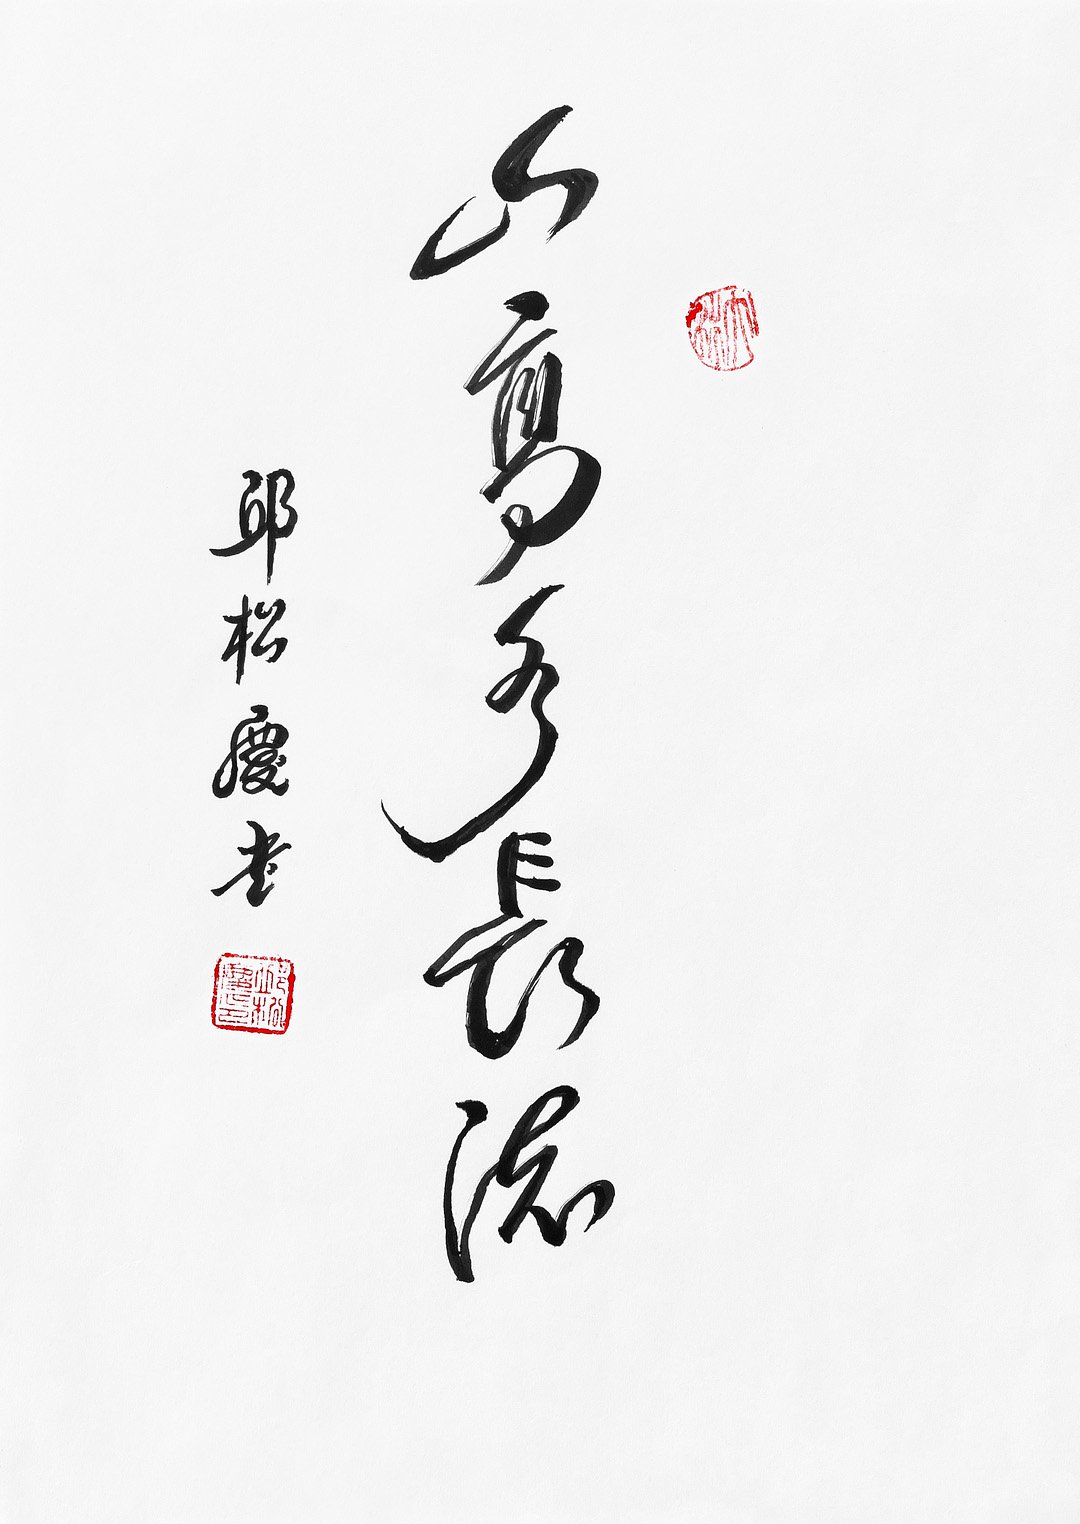 山高水長流
邱松慶書
邱松慶印